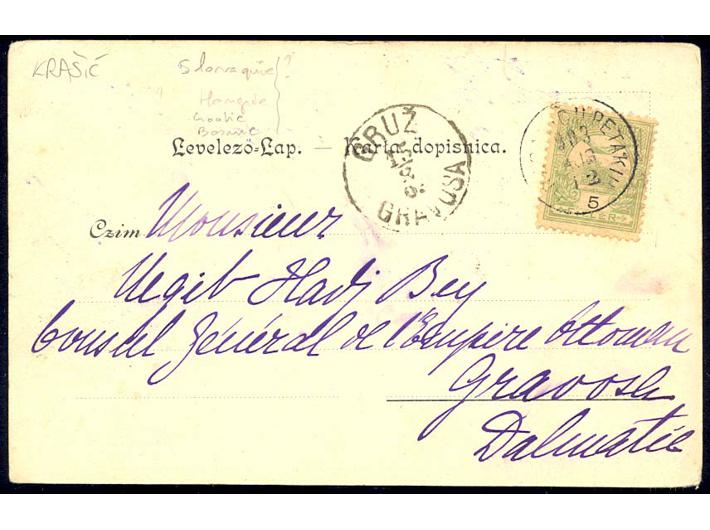 KRAŠIĆ
Slovaquie ?
Hongrie
Croatie
Bosnie
Levelező-Lap. — Karta dopisnica.
GRUŽ
GRAVOSA
5
Czim Monsieur
Negib Hadj Bey
Consul Général de l'Empire Ottoman
Gravosa
Dalmatie